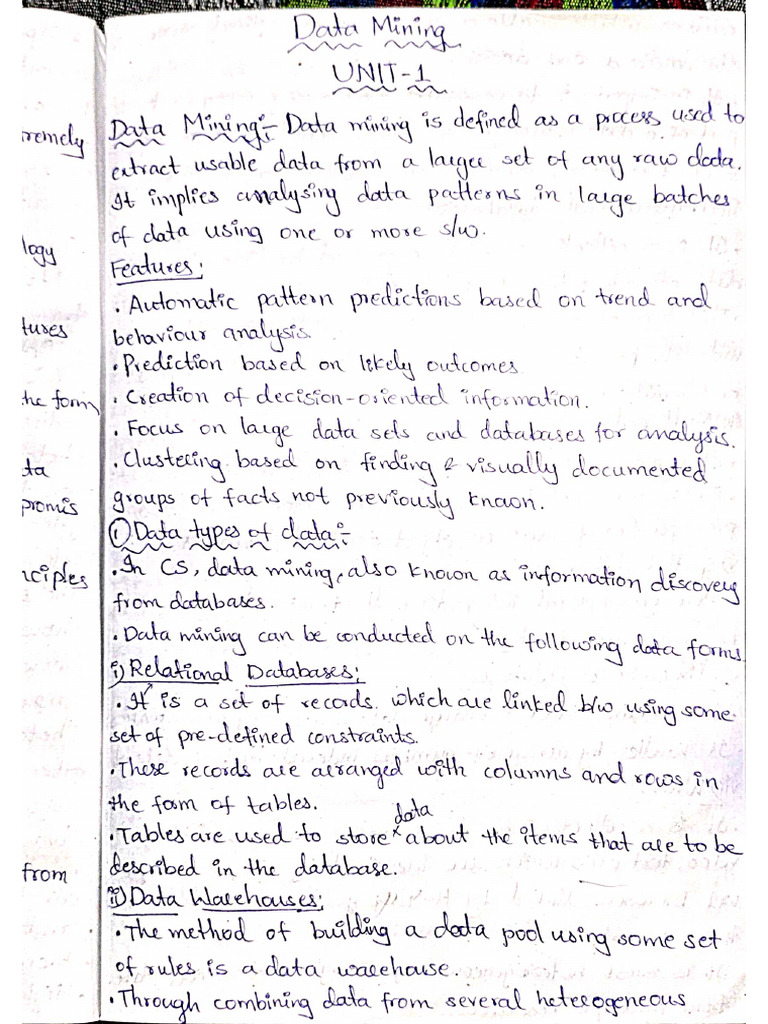 Data Mining
UNIT-1
Data Mining:- Data mining is defined as a process used to
extract usable data from a larger set of any raw data.
It implies analysing data patterns in large batches
of data using one or more s/w.
Features:
• Automatic pattern predictions based on trend and
behaviour analysis.
• Prediction based on likely outcomes
• Creation of decision-oriented information.
• Focus on large data sets and databases for analysis.
• Clustering based on finding & visually documented
groups of facts not previously known.
① Data types of data:-
• In CS, data mining, also known as information discovery
from databases.
• Data mining can be conducted on the following data forms
i) Relational Databases:
• It is a set of records. which are linked b/w using some
set of pre-defined constraints.
• These records are arranged with columns and rows in
the form of tables.
data
• Tables are used to store about the items that are to be
described in the database.
ii) Data Warehouses:
• The method of building a data pool using some set
of rules is a data warehouse.
• Through combining data from several heterogeneous
remely
logy
tures
the form
ta
promis
nciples
from